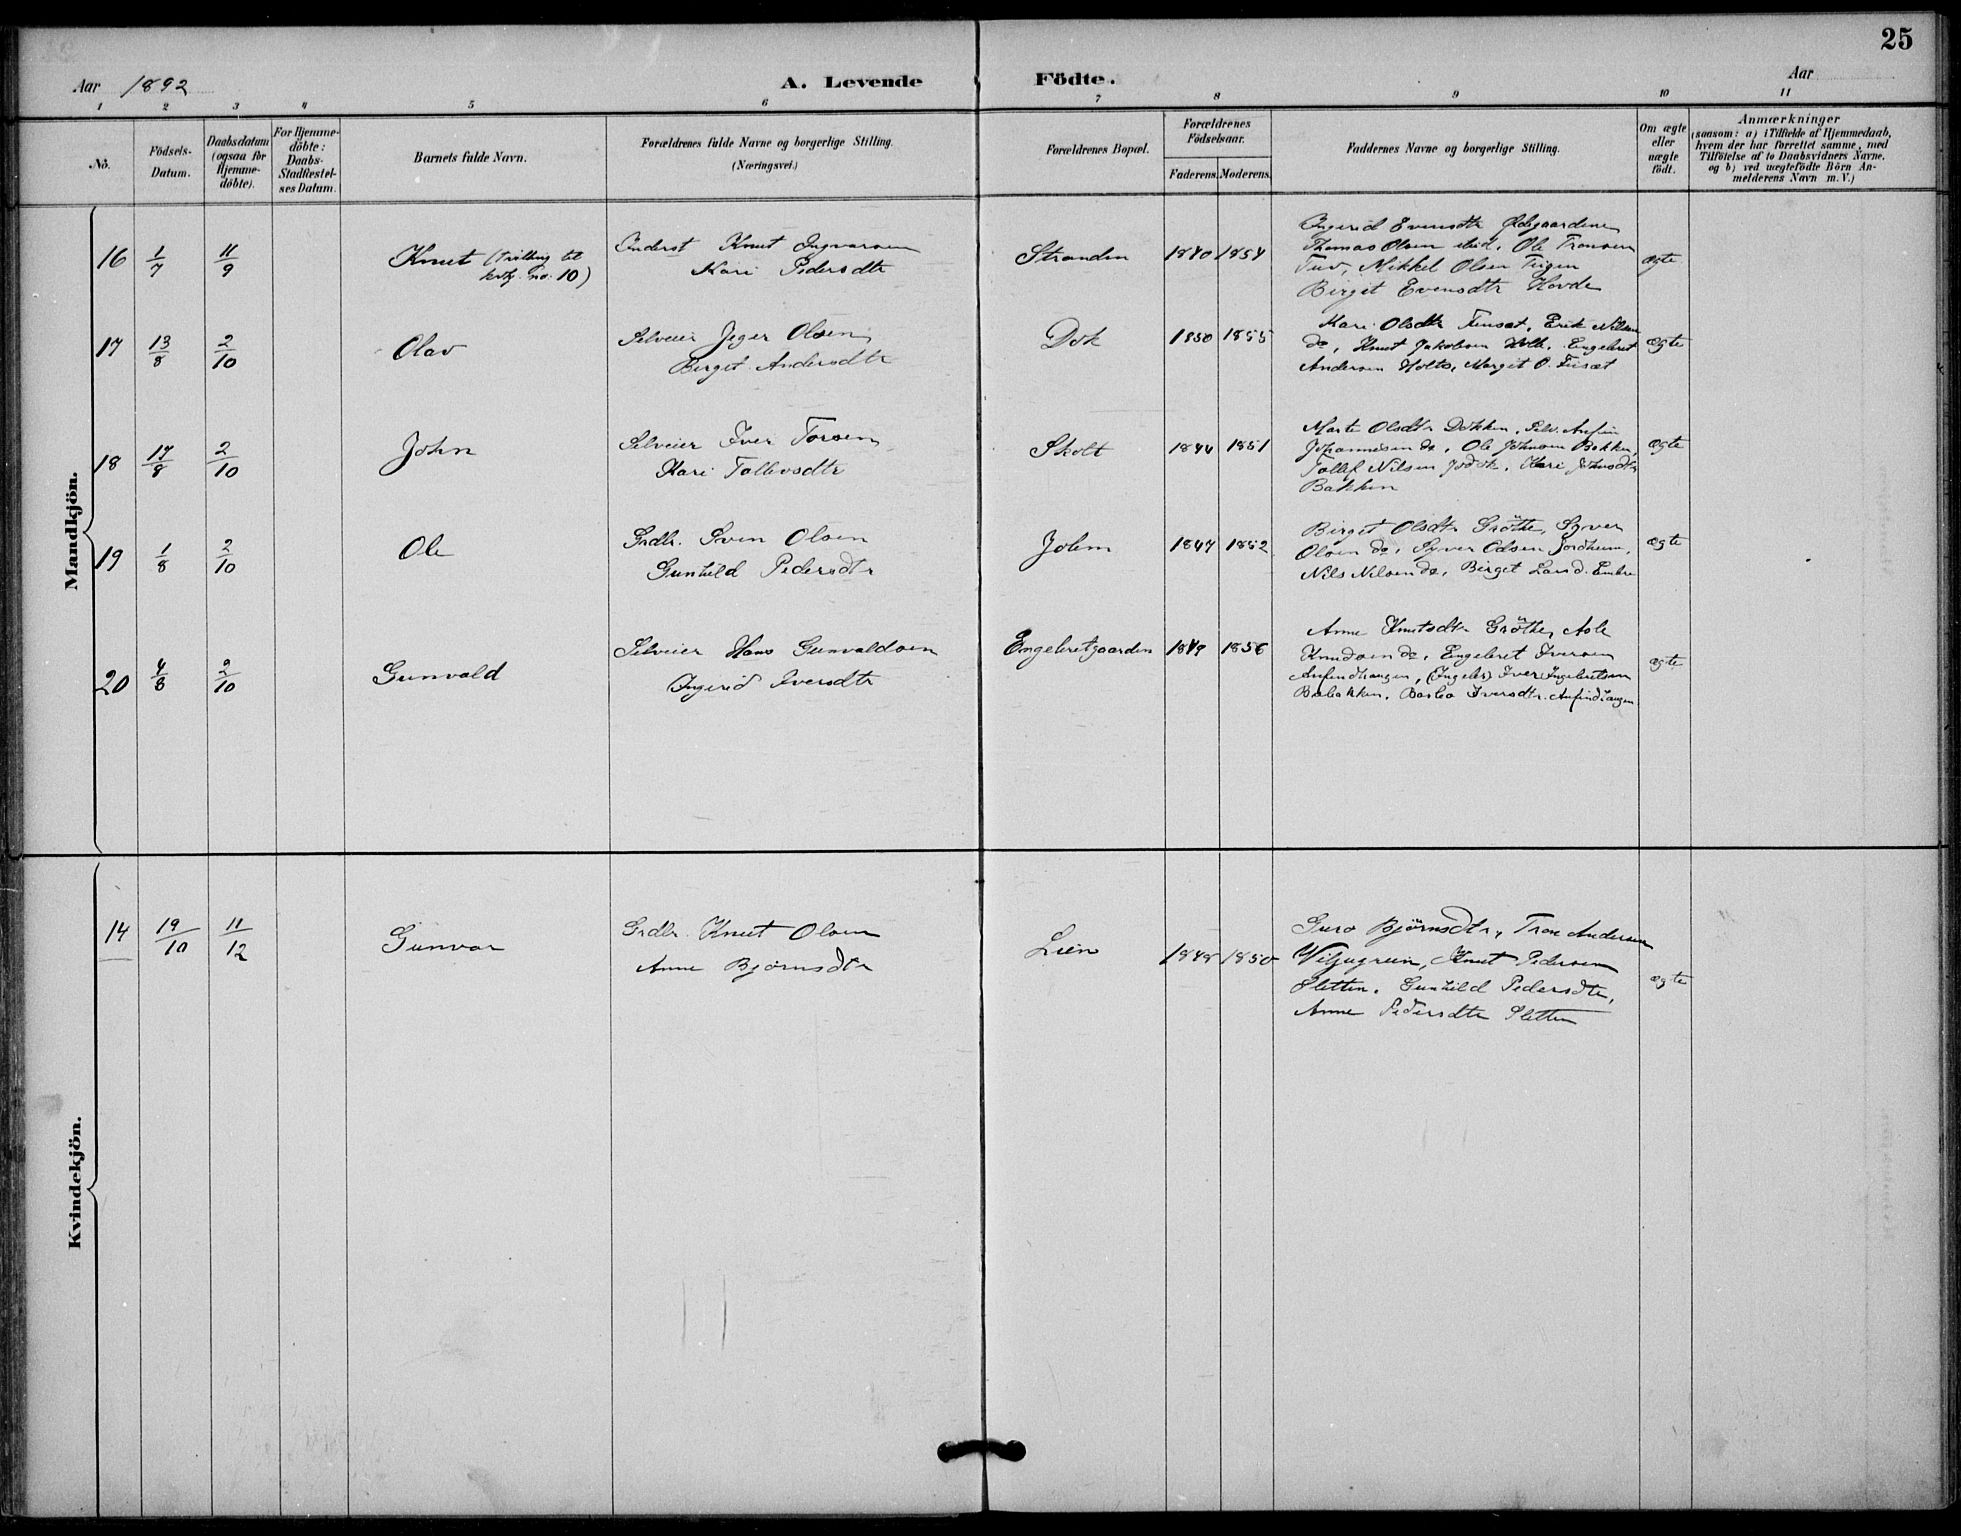 25
Aar 1892
A. Levende Födte.
Aar
1 2 3 4 5 6 7 8 9 10 11
No.
Födsels-Datum.
Daabsdatum (ogsaa for Hjemme-döbte).
For Hjemme-döbte: Daabs-Stadfæstel-ses Datum.
Barnets fulde Navn.
Forældrenes fulde Navne og borgerlige Stilling.
(Næringsvei.)
Forældrenes Bopæl.
Forældrenes Födselsaar.
Faderens. Moderens.
Faddernes Navne og borgerlige Stilling.
Om ægte eller uægte födt.
Anmærkninger
(saasom: a) i Tilfælde af Hjemmedaab,
hvem der har forrettet samme, med
Tilföielse af to Daabsvidners Navne,
og b) ved uægtefödte Börn An-
melderens Navn m. V.)
Mandkjön.
16 1/7 11/9 Knut (tvilling til
kvkj. no. 10)
Inderst Knut Ingvarsen
Kari Pedersdtr
Stranden 1840 1854
Ingerid Evensdtr Ødegaardene
Thomas Olsen ibid. Ole Tronsen
Tuv, Mikkel Olsen Teigen
Birgit Evensdtr Hovde
ægte
17 13/8 2/10 Olav
Selveier Jeger Olsen
Birget Andersdtr
Dok 1850 1855
Kari Olsdtr Tuset, Erik Nilsen
do, Knut Jakobsen Holte, Engebret
Andersen Holto, Margit O. Tuset
ægte
18 17/8 2/10 John
Selveier Iver Torsen
Kari Tollevsdtr
Skolt 1844 1851
Marte Olsdtr Dokken, Selv. Anfin
Johannesen do, Ole Johnsen Bakken,
Tollef Nilsen, Kari Johnsdtr
Bakken
ægte
19 1/8 2/10 Ole
Grdbr. Sven Olsen
Gunhild Pedersdtr
Jolem 1847 1852
Birget Olsdtr Gröthe, Syver
Olsen do, Syver Odsen Jordheim,
Nils Nilsen do, Birget Larsd. Embre
ægte
20 4/8 2/10 Gunvald
Selveier Hans Gunvaldsen
Ingerid Iversdtr
Engebretgaarden 1849 1856
Anne Knutsdtr Gröthe, Asle
Knudsen do, Engebret Iversen
Anfindhaugen, (Ingebr) Iver Ingebretsen
Babakken, Barbo Iversdtr. Anfindhaugen
ægte
Kvindekjön.
14 19/10 11/12 Gunvor
Grdbr. Knut Olsen
Anne Björnsdtr
Lien 1848 1850
Guro Björnsdtr, Tron Andersen
Knut Pedersen
Sletten, Gunhild Pedersdtr,
Anne Pedersdtr Sletten
ægte